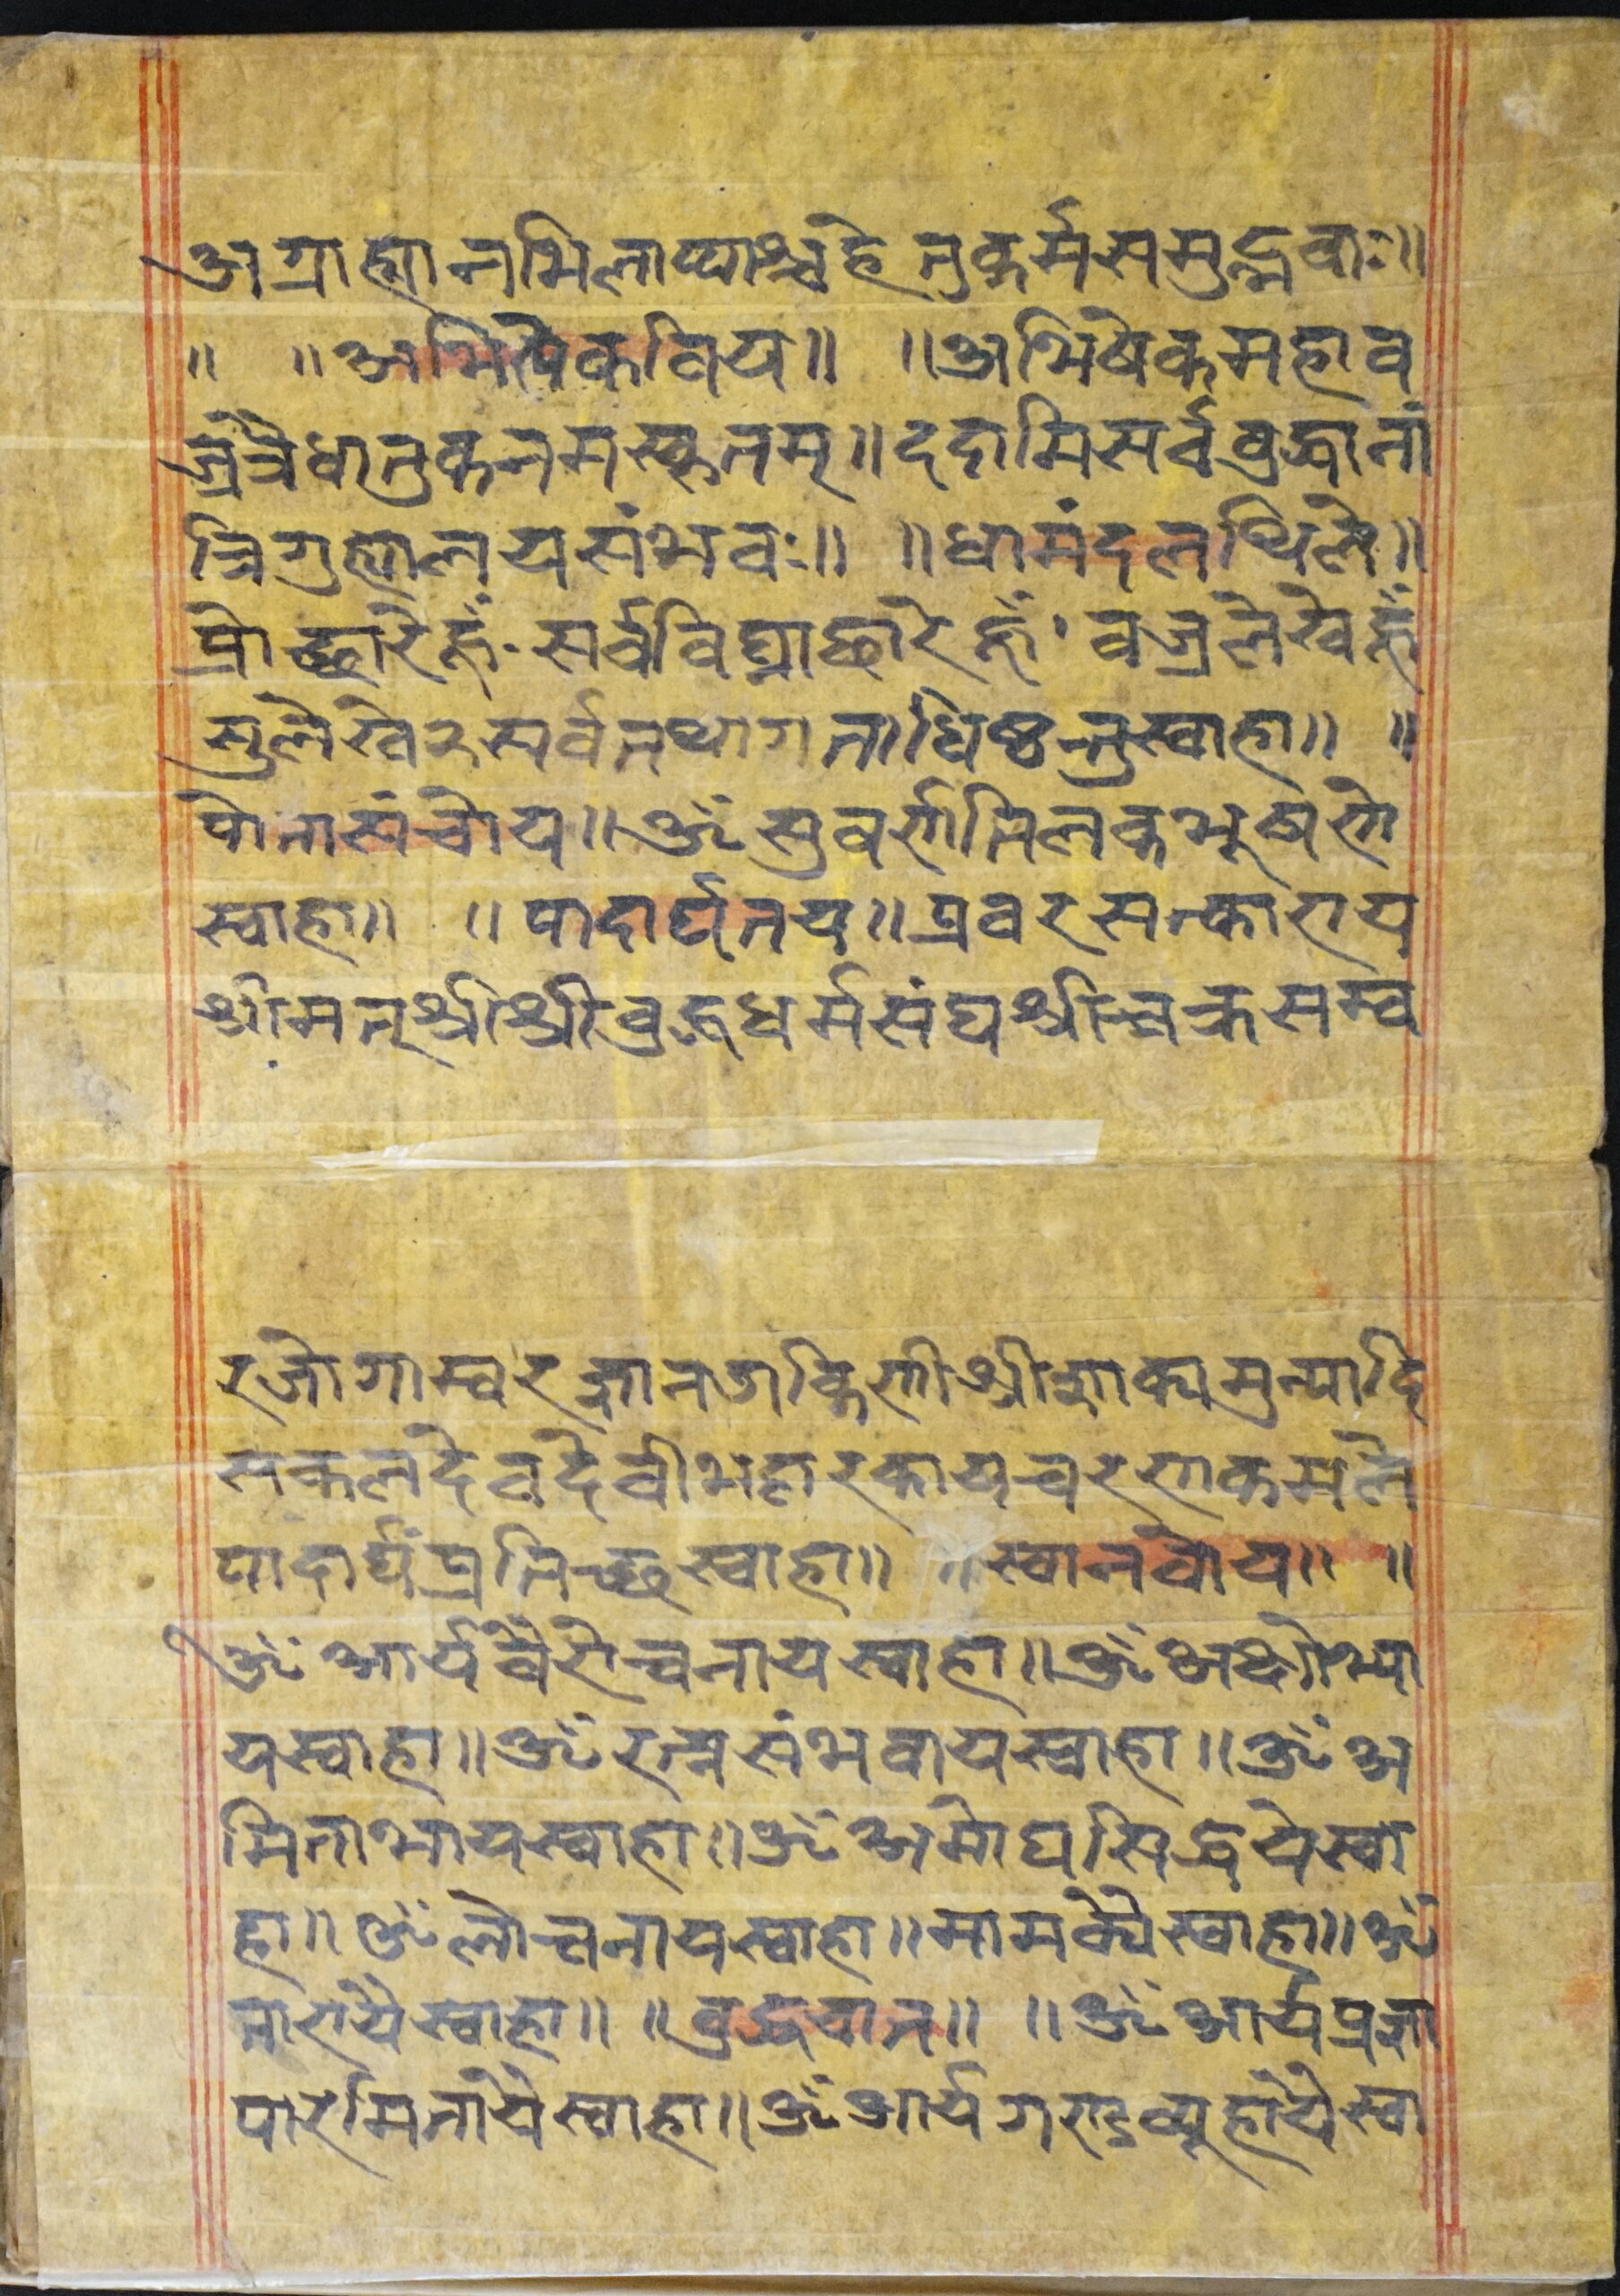 अग्राह्यानभिलाप्याश्चहेतुकर्मसमुद्भवाः॥
॥ ॥अभिषेकविय॥ ॥अभिषेकमहाव
ज्रत्रैधातुकनमस्कृतम्॥ददामिसर्वबुद्धानां
त्रिगुह्यालयसंभवः॥ ॥धामंदलथिले॥
प्रोच्छारेहूँ॰सर्वविघ्नाछारेहूँ॰वज्रलेखेहूँ
सुलेखे२सर्वतथागताधिष्ठन्तुस्वाहा॥ ॥
पोतासंचोय॥ॐसुवर्णतिलकभूषणे
स्वाहा॥ ॥पादार्घतय॥प्रवरसत्काराय
श्रीमत्श्रीश्रीबुद्धधर्मसंघश्रीचक्रसम्व
रजोगाम्वरज्ञानडाकिणीश्रीशाक्यमुन्यादि
सकलदेवदेवीभट्टारकायचरणकमले
पादार्घंप्रतिच्छस्वाहा॥ ॥स्वानवोय॥ ॥
ॐआर्यवैरोचनायस्वाहा॥ॐअक्षोभ्या
यस्वाहा॥ॐरत्नसंभवायस्वाहा॥ॐअ
मिताभायस्वाहा॥ॐअमोघसिद्धयेस्वा
हा॥ॐलोचनायस्वाहा॥मामक्यैस्वाहा॥ॐ
तारायैस्वाहा॥ ॥बुद्धयान॥ ॥ॐआर्यप्रज्ञा
पारमितायैस्वाहा॥ॐआर्यगण्डव्यूहायैस्वा